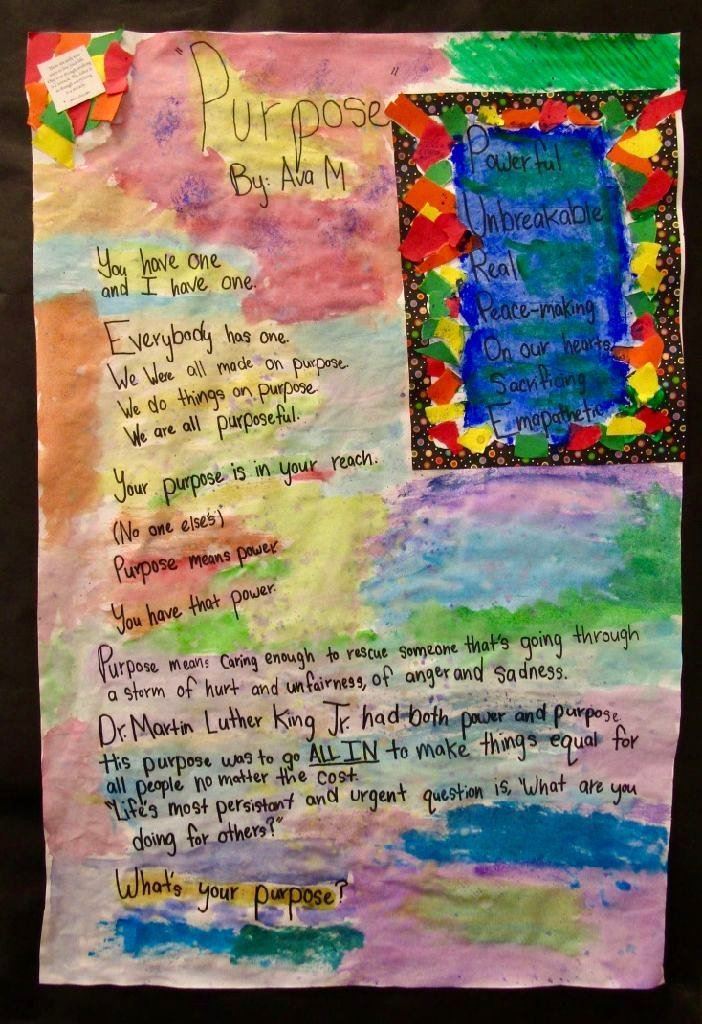 "Purpose"
By: Ava M
Powerful
Unbreakable
Real
Peace-making
On our hearts
Sacrificing
Emapathetic
You have one
and I have one.
Everybody has one.
We Were all made on purpose.
We do things on purpose
We are all purposeful.
Your purpose is in your reach.
(No one else's)
Purpose means power
You have that power.
Purpose means Caring enough to rescue someone that's going through
a storm of hurt and unfairness, of anger and sadness.
Dr. Martin Luther King Jr. had both power and purpose
His purpose was to go ALL IN to make things equal for
all people no matter the cost.
"Life's most persistant and urgent question is, "What are you
doing for others?"
What's your purpose?